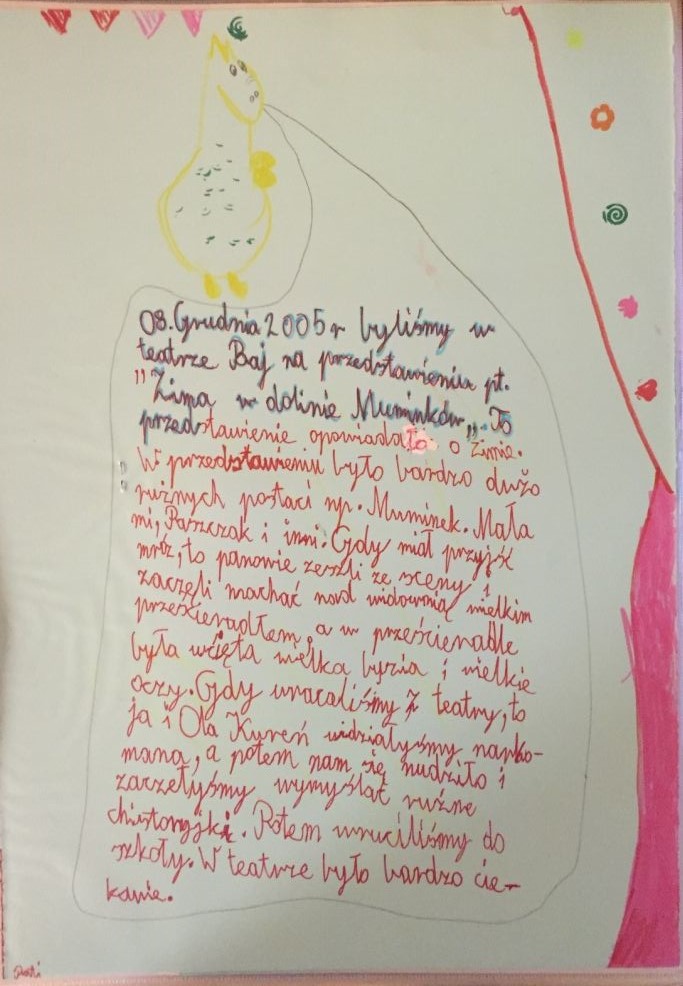 08. Grudnia 2005r byliśmy w
teatrze Baj na przedstawieniu pt.
"Zima w dolinie Muminków„. To
przedstawienie opowiadało o zimie.
W przedstawieniu było bardzo dużo
rużnych postaci np. Muminek. Mała
mi, Paszczak i inni. Gdy miał przyjść
mróz, to panowie zeszli ze sceny i
zaczęli machać nad widownią wielkim
prześcieradłem, a w prześcieradle
była wcięta wielka byzia i wielkie
oczy. Gdy wracaliśmy z teatry, to
ja i Ola Kureń widziałyśmy narko-
mana, a potem nam się nudziło i
zaczełyśmy wymyślać rużne
chistoryjki. Potem wruciliśmy do
szkoły. W teatrze było bardzo cie-
kawie.